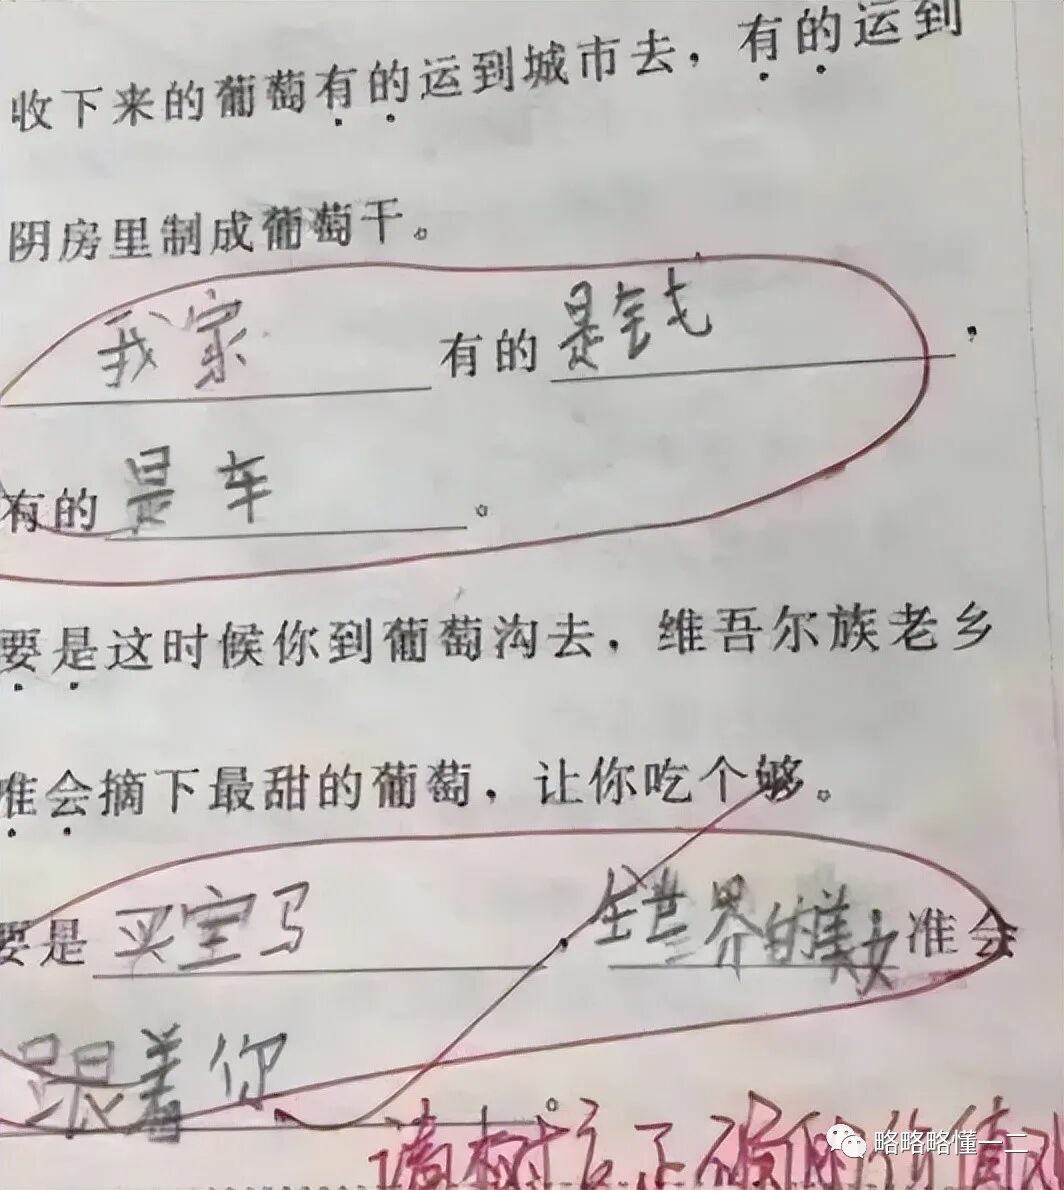 收下来的葡萄有的运到城市去，有的运到
阴房里制成葡萄干。
我家有的是钱，
有的是车。
要是这时候你到葡萄沟去，维吾尔族老乡
准会摘下最甜的葡萄，让你吃个够。
要是买宝马，全世界的美女准会
跟着你。
请树立正确的价值
略略略懂一二